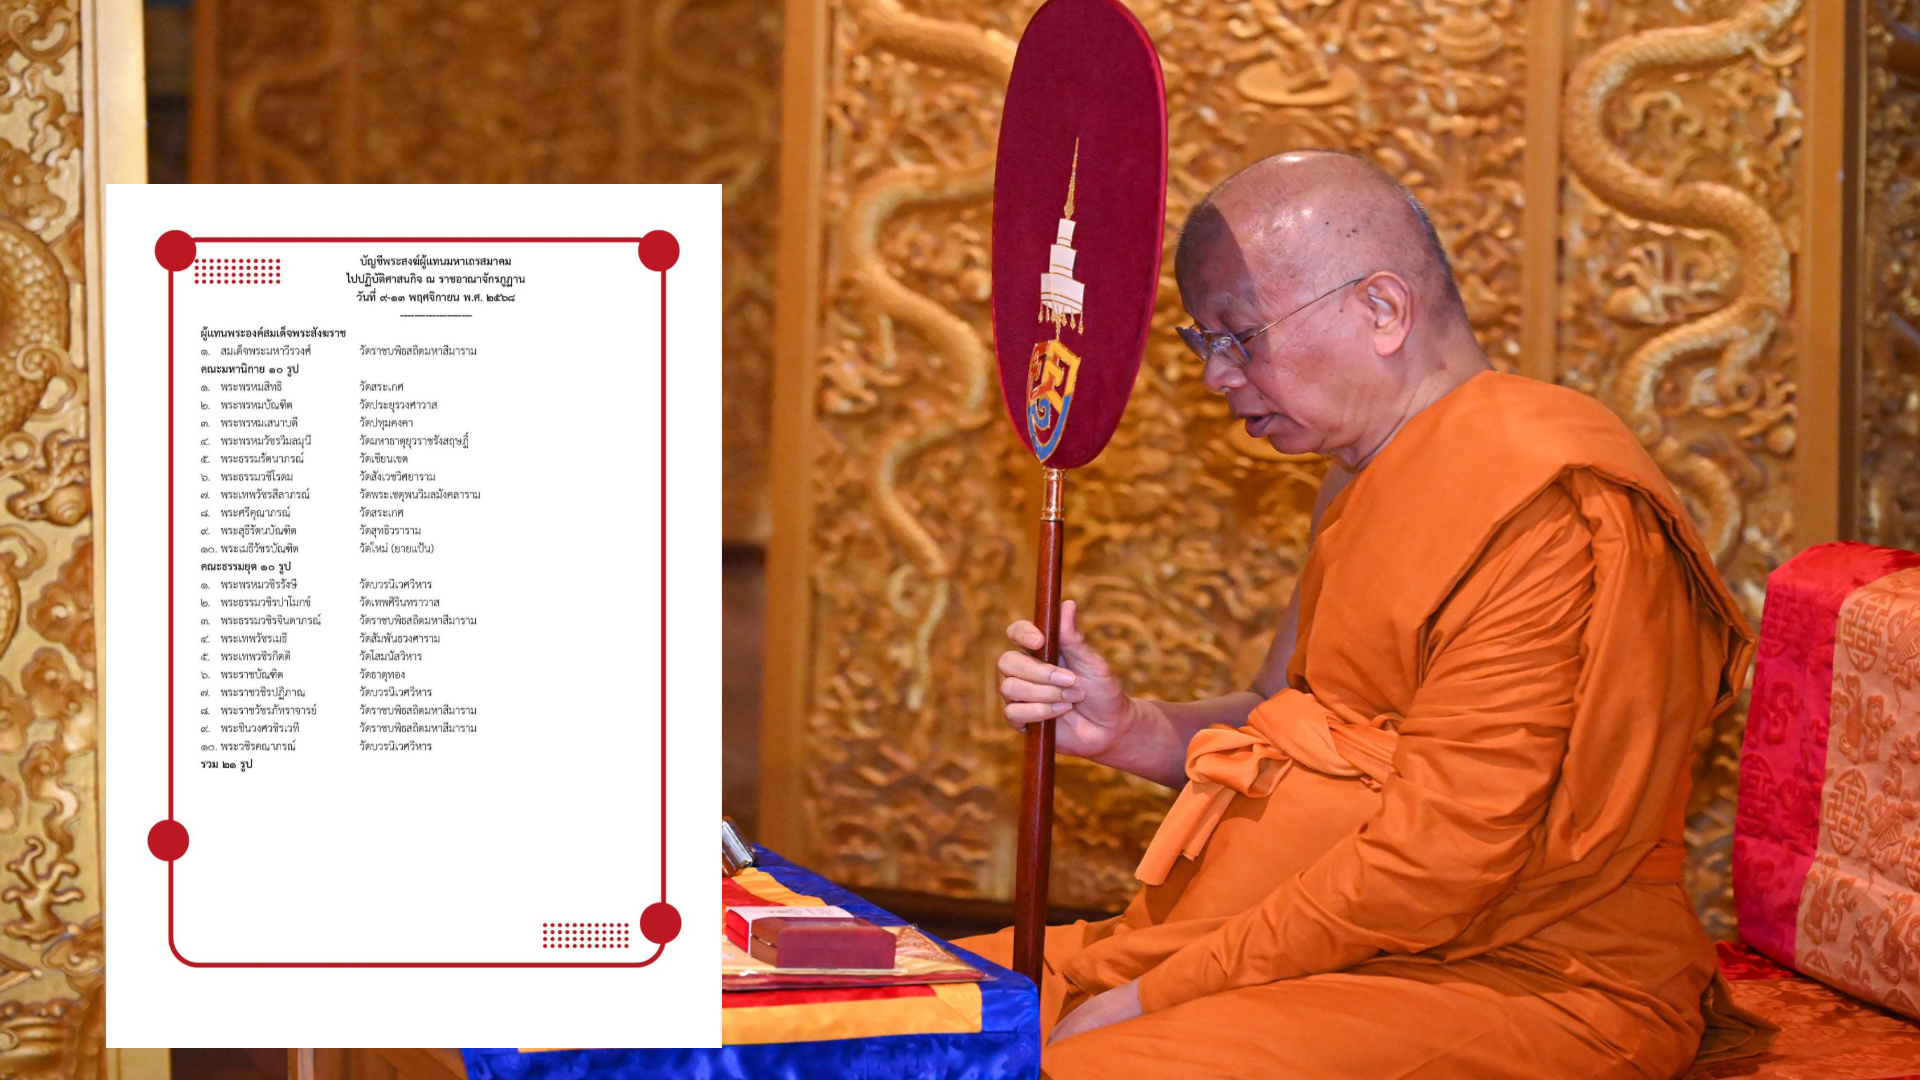 บัญชีพระสงฆ์ผู้แทนมหาเถรสมาคม
ไปปฏิบัติศาสนกิจ ณ ราชอาณาจักรภูฏาน
วันที่ ๙-๑๓ พฤศจิกายน พ.ศ. ๒๕๖๘
--------------------
ผู้แทนพระองค์สมเด็จพระสังฆราช
๑. สมเด็จพระมหาวีรวงศ์ วัดราชบพิธสถิตมหาสีมาราม
คณะมหานิกาย ๑๐ รูป
๑. พระพรหมสิทธิ วัดสระเกศ
๒. พระพรหมบัณฑิต วัดประยุรวงศาวาส
๓. พระพรหมเสนาบดี วัดปทุมคงคา
๔. พระพรหมวัชรวิมลมุนี วัดมหาธาตุยุวราชรังสฤษฎิ์
๕. พระธรรมรัตนาภรณ์ วัดเขียนเขต
๖. พระธรรมวชิโรดม วัดสังเวชวิศยาราม
๗. พระเทพวัชรสีลาภรณ์ วัดพระเชตุพนวิมลมังคลาราม
๘. พระศรีคุณาภรณ์ วัดสระเกศ
๙. พระสุธีรัตนบัณฑิต วัดสุทธิวราราม
๑๐. พระเมธีวัชรบัณฑิต วัดใหม่ (ยายแป้น)
คณะธรรมยุต ๑๐ รูป
๑. พระพรหมวชิรรังษี วัดบวรนิเวศวิหาร
๒. พระธรรมวชิรปาโมกข์ วัดเทพศิรินทราวาส
๓. พระธรรมวชิรจินดาภรณ์ วัดราชบพิธสถิตมหาสีมาราม
๔. พระเทพวัชรเมธี วัดสัมพันธวงศาราม
๕. พระเทพวชิรกิตติ วัดโสมนัสวิหาร
๖. พระราชบัณฑิต วัดธาตุทอง
๗. พระราชวชิรปฏิภาณ วัดบวรนิเวศวิหาร
๘. พระราชวัชรภัทราจารย์ วัดราชบพิธสถิตมหาสีมาราม
๙. พระชินวงศวชิรเวที วัดราชบพิธสถิตมหาสีมาราม
๑๐. พระวชิรคณาภรณ์ วัดบวรนิเวศวิหาร
รวม ๒๑ รูป